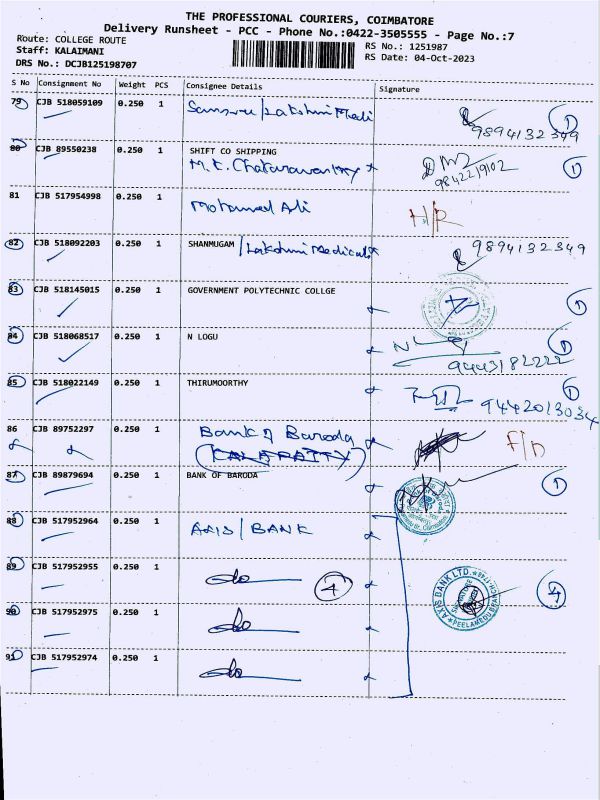 THE PROFESSIONAL COURIERS, COIMBATORE
Delivery Runsheet - PCC - Phone No.:0422-3505555 - Page No.:7
Route: COLLEGE ROUTE
RS No.: 1251987
Staff: KALAIMANI
RS Date: 04-Oct-2023
DRS No.: DCJB125198707
S No Consignment No Weight PCS Consignee Details Signature
79 CJB 518059109 0.250 1 / Lakshmi Medi 1
9894132349
80 CJB 89550238 0.250 1 SHIFT CO SHIPPING 1
M.K. Chakaravarthy 9842219102
81 CJB 517954998 0.250 1 Mohamed Ali H/R
82 CJB 518092203 0.250 1 SHANMUGAM / Lakshmi Medicals 9894132349
83 CJB 518145015 0.250 1 GOVERNMENT POLYTECHNIC COLLGE 1
84 CJB 518068517 0.250 1 N LOGU 1
9443182222
85 CJB 518022149 0.250 1 THIRUMOORTHY 1
9442013034
86 CJB 89752297 0.250 1 Bank of Baroda F/D
(KALAPATTY)
87 CJB 89879694 0.250 1 BANK OF BARODA 1
88 CJB 517952964 0.250 1 AXIS / BANK
89 CJB 517952955 0.250 1 do 4 AXIS BANK LTD. PEELAMEDU BRANCH 4
90 CJB 517952975 0.250 1 do
91 CJB 517952974 0.250 1 do